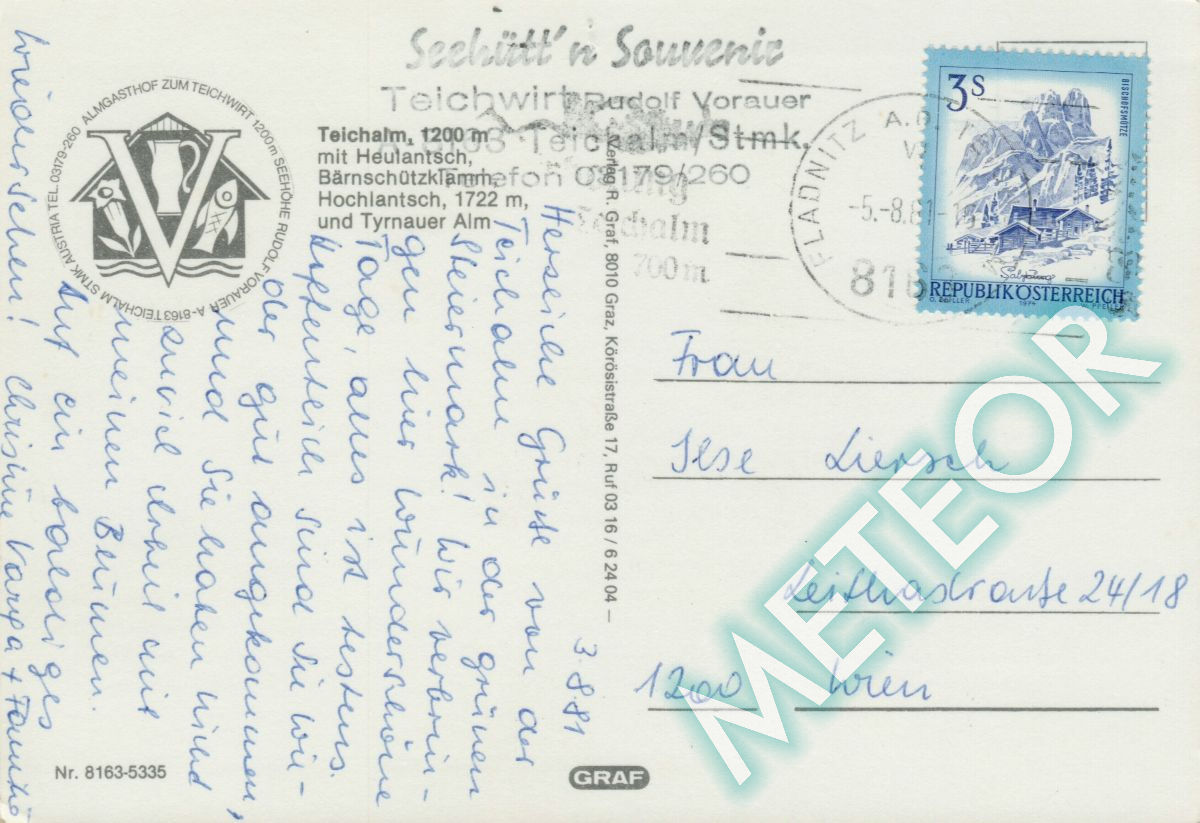 Seehütt'n Souvenir
Teichwirt Rudolf Vorauer
A-8163 Teichalm/Stmk.
Telefon 03179/260
ALMGASTHOF ZUM TEICHWIRT 1200m SEEHÖHE RUDOLF VORAUER A-8163 TEICHALM STMK AUSTRIA TEL. 03179-260
V
Teichalm, 1200 m
mit Heulantsch,
Bärnschützklamm,
Hochlantsch, 1722 m,
und Tyrnauer Alm
3.8.81
Herzliche Grüße von der
Teichalm in der grünen
Steiermark! Wir verbrin-
gen hier wunderschöne
Tage, alles ist bestens.
Hoffentlich sind Sie wie-
der gut angekommen,
und Sie haben nicht
zuviel Arbeit mit
meinen Blumen.
Auf ein baldiges
Wiedersehen! Christine Varga + Familie
Verlag R. Graf, 8010 Graz, Körösistraße 17, Ruf 03 16 / 6 24 04 –
Teichalm
700 m
FLADNITZ A.D.
-5.-8.81-
816
3S
BISCHOFSMÜTZE
Salzburg
REPUBLIK ÖSTERREICH
1974
Frau
Ilse Liersch
Leithastraße 24/18
1200 Wien
METEOR
Nr. 8163-5335
GRAF